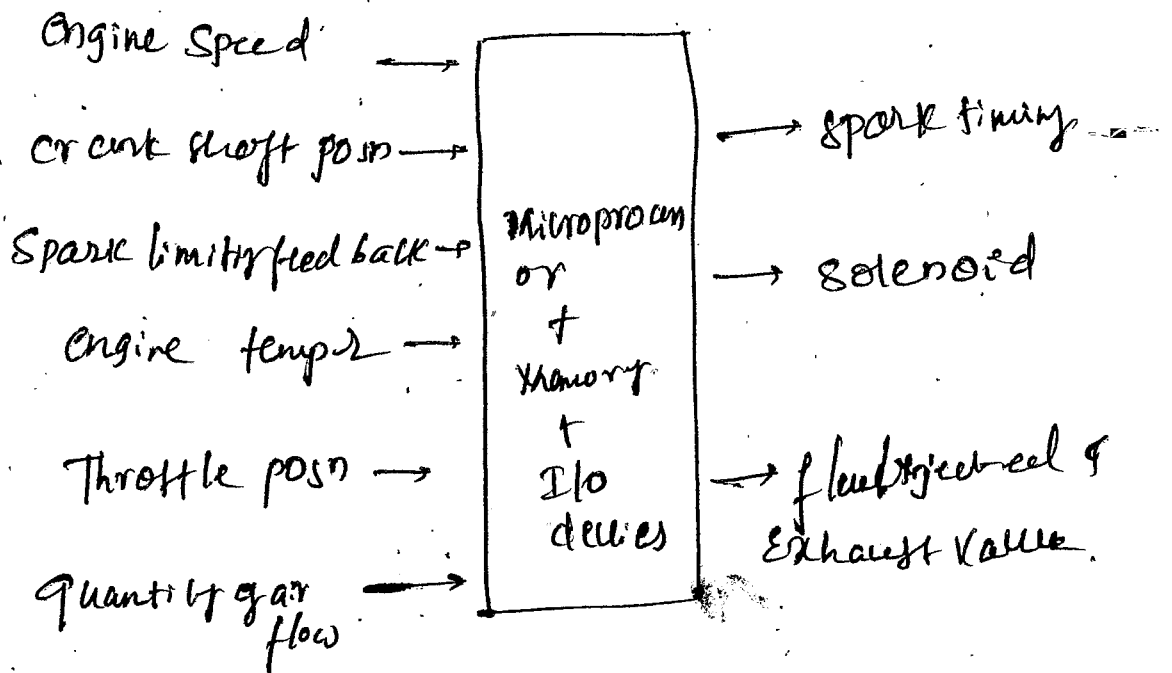 Engine Speed
Crank shaft posn
Spark limiting feed back
Engine tempr
Throttle posn
Quantity of air
flow
Microprocess
or
+
Memory
+
I/o
devices
spark timing
Solenoid
Exhaust Valve.